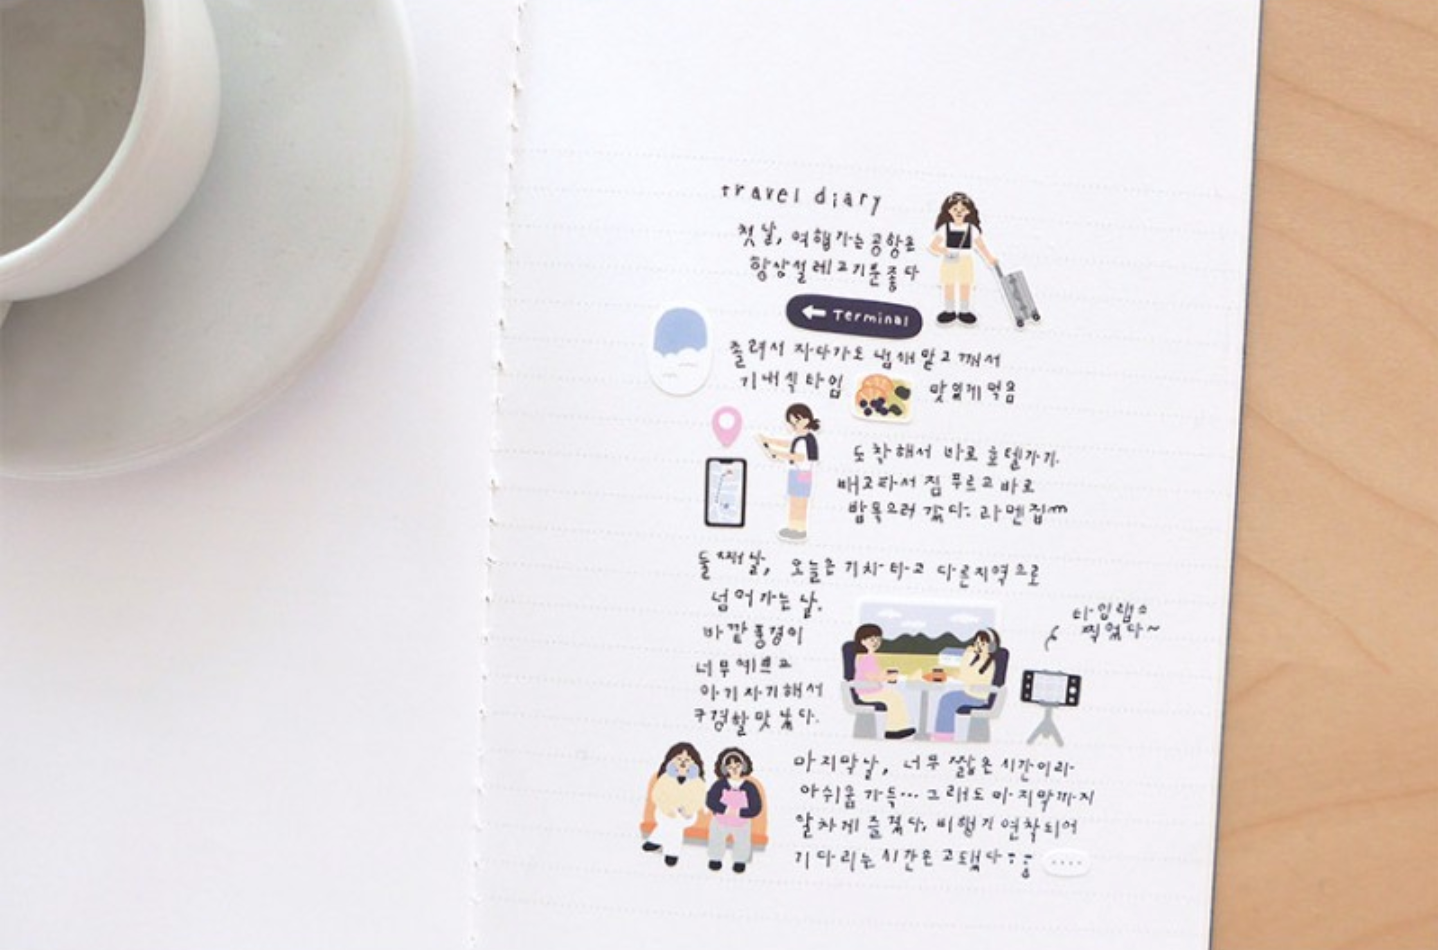 travel diary
첫날, 여행가는 공항은
항상 설레고 기분 좋다
← Terminal
졸려서 자다가도 냄새 맡고 깨서
기내식 타임 맛있게 먹음
도착해서 바로 호텔가기.
배고파서 짐 푸르고 바로
밥 먹으러 갔다. 라멘집m
둘째날, 오늘은 기차 타고 다른지역으로
넘어가는 날.
바깥 풍경이
너무 예쁘고
아기자기해서
구경할 맛 났다.
타임랩스
찍었다~
마지막날, 너무 짧은 시간이라
아쉬움 가득... 그래도 마지막까지
알차게 즐겼다. 비행기 연착되어
기다리는 시간은 고됐다;;
....